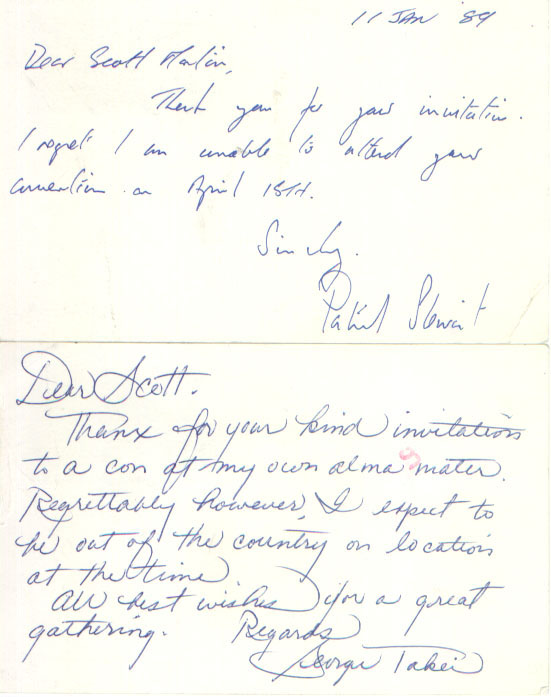 11 JAN '89
Dear Scott Martin,
Thank you for your invitation.
I regret I am unable to attend your
convention on April 15th.
Sincerely,
Patrick Stewart
Dear Scott.
Thanx for your kind invitation
to a con at my own alma mater.
Regrettably however, I expect to
be out of the country on location
at the time
All best wishes for a great
gathering. Regards
George Takei